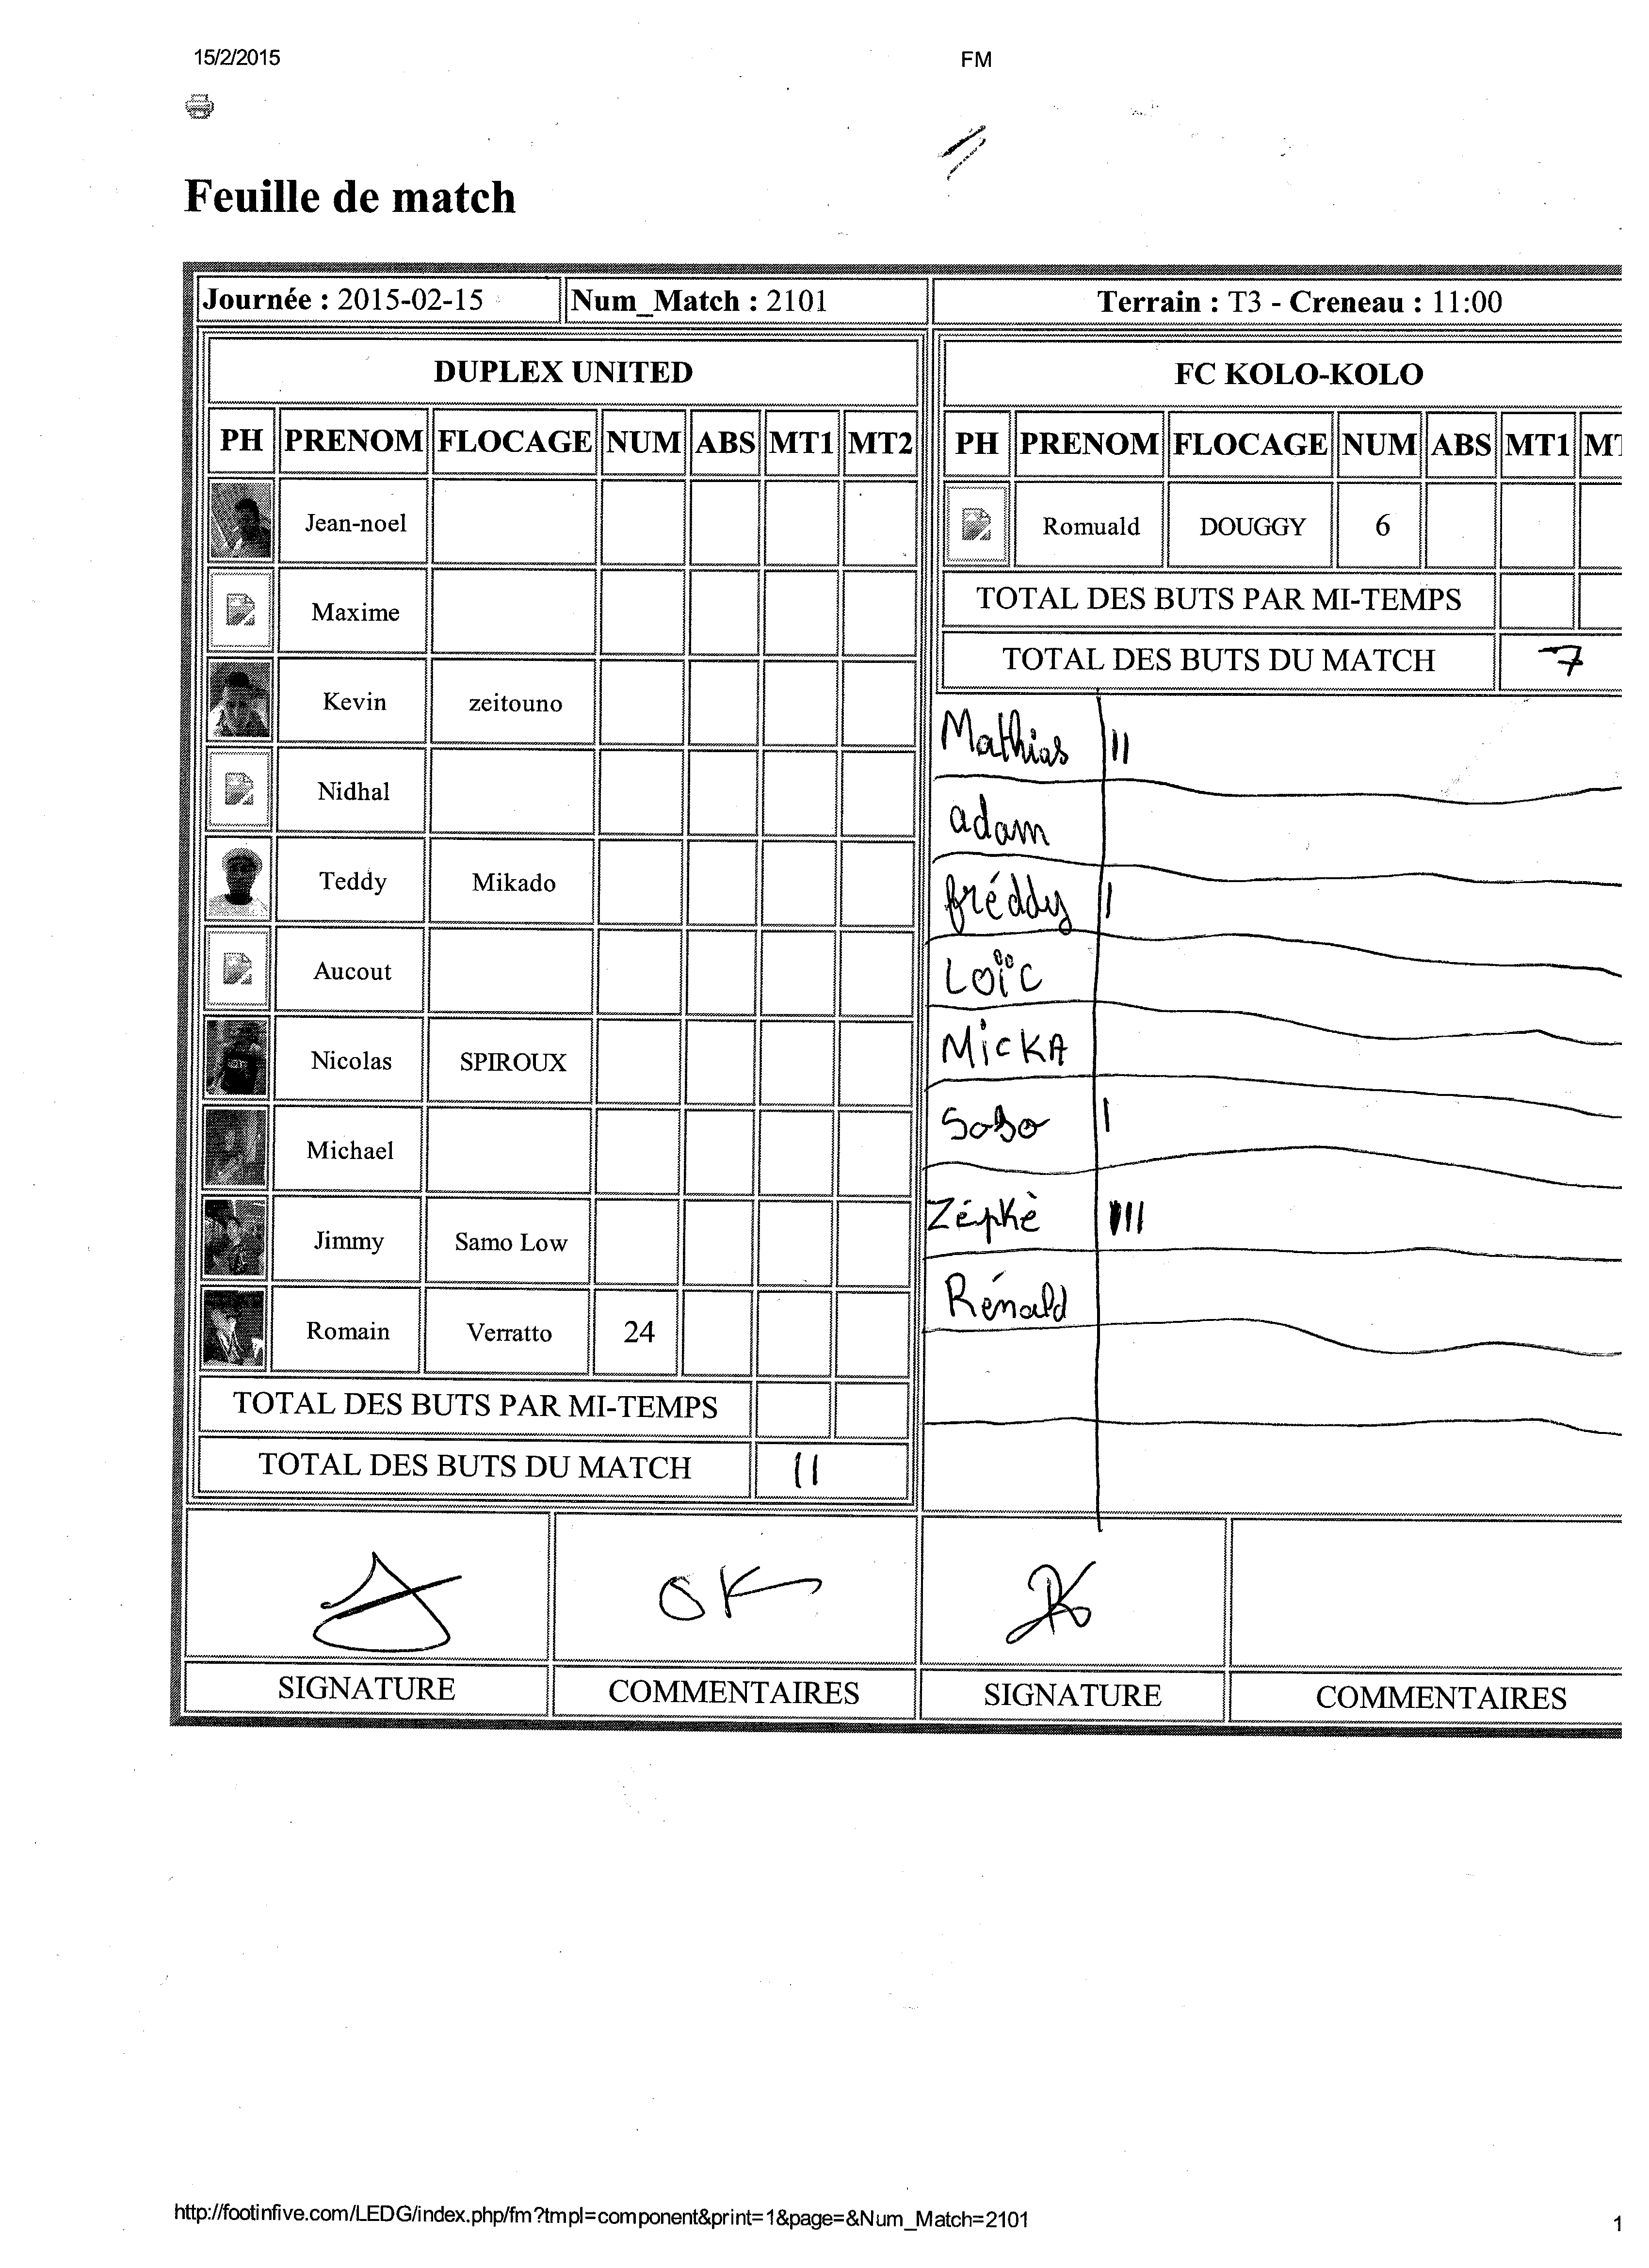 15/2/2015 FM
Feuille de match
Journée : 2015-02-15 Num_Match : 2101 Terrain : T3 - Creneau : 11:00
DUPLEX UNITED
PH PRENOM FLOCAGE NUM ABS MT1 MT2
Jean-noel
Maxime
Kevin zeitouno
Nidhal
Teddy Mikado
Aucout
Nicolas SPIROUX
Michael
Jimmy Samo Low
Romain Verratto 24
TOTAL DES BUTS PAR MI-TEMPS
TOTAL DES BUTS DU MATCH 11
FC KOLO-KOLO
PH PRENOM FLOCAGE NUM ABS MT1 MT
Romuald DOUGGY 6
TOTAL DES BUTS PAR MI-TEMPS
TOTAL DES BUTS DU MATCH 7
Mathias II
adam
fréddy I
Loïc
MicKA
Sobo I
Zépkè III
Rénald
OK
SIGNATURE COMMENTAIRES SIGNATURE COMMENTAIRES
http://footinfive.com/LEDG/index.php/fm?tmpl=component&print=1&page=&Num_Match=2101 1